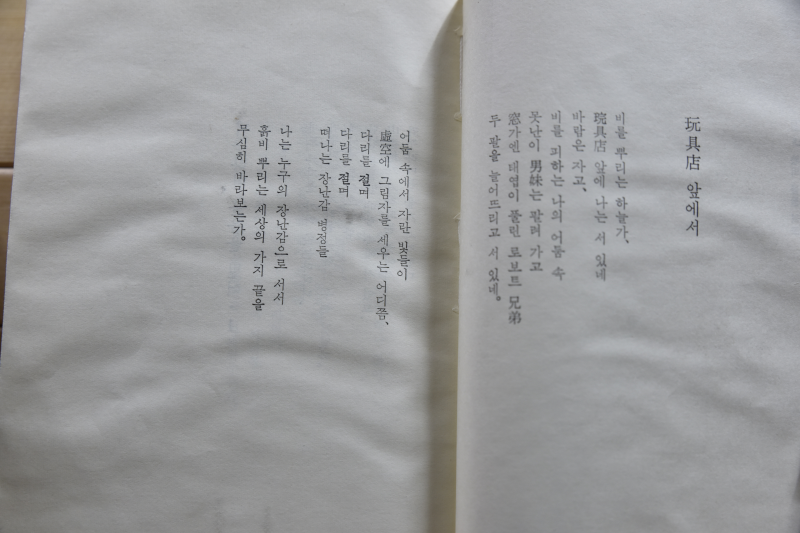 玩具店 앞에서
비를 뿌리는 하늘가、
玩具店 앞에 나는 서 있네
바람은 자고、
비를 피하는 나의 어둠 속
못난이 男妹는 팔려 가고
窓가엔 태엽이 풀린 로보트 兄弟
두 팔을 늘어뜨리고 서 있네。
어둠 속에서 자란 빛들이
虛空에 그림자를 세우는 어디쯤、
다리를 절며
다리를 절며
떠나는 장난감 병정들
나는 누구의 장난감으로 서서
흙비 뿌리는 세상의 가지 끝을
무심히 바라보는가。